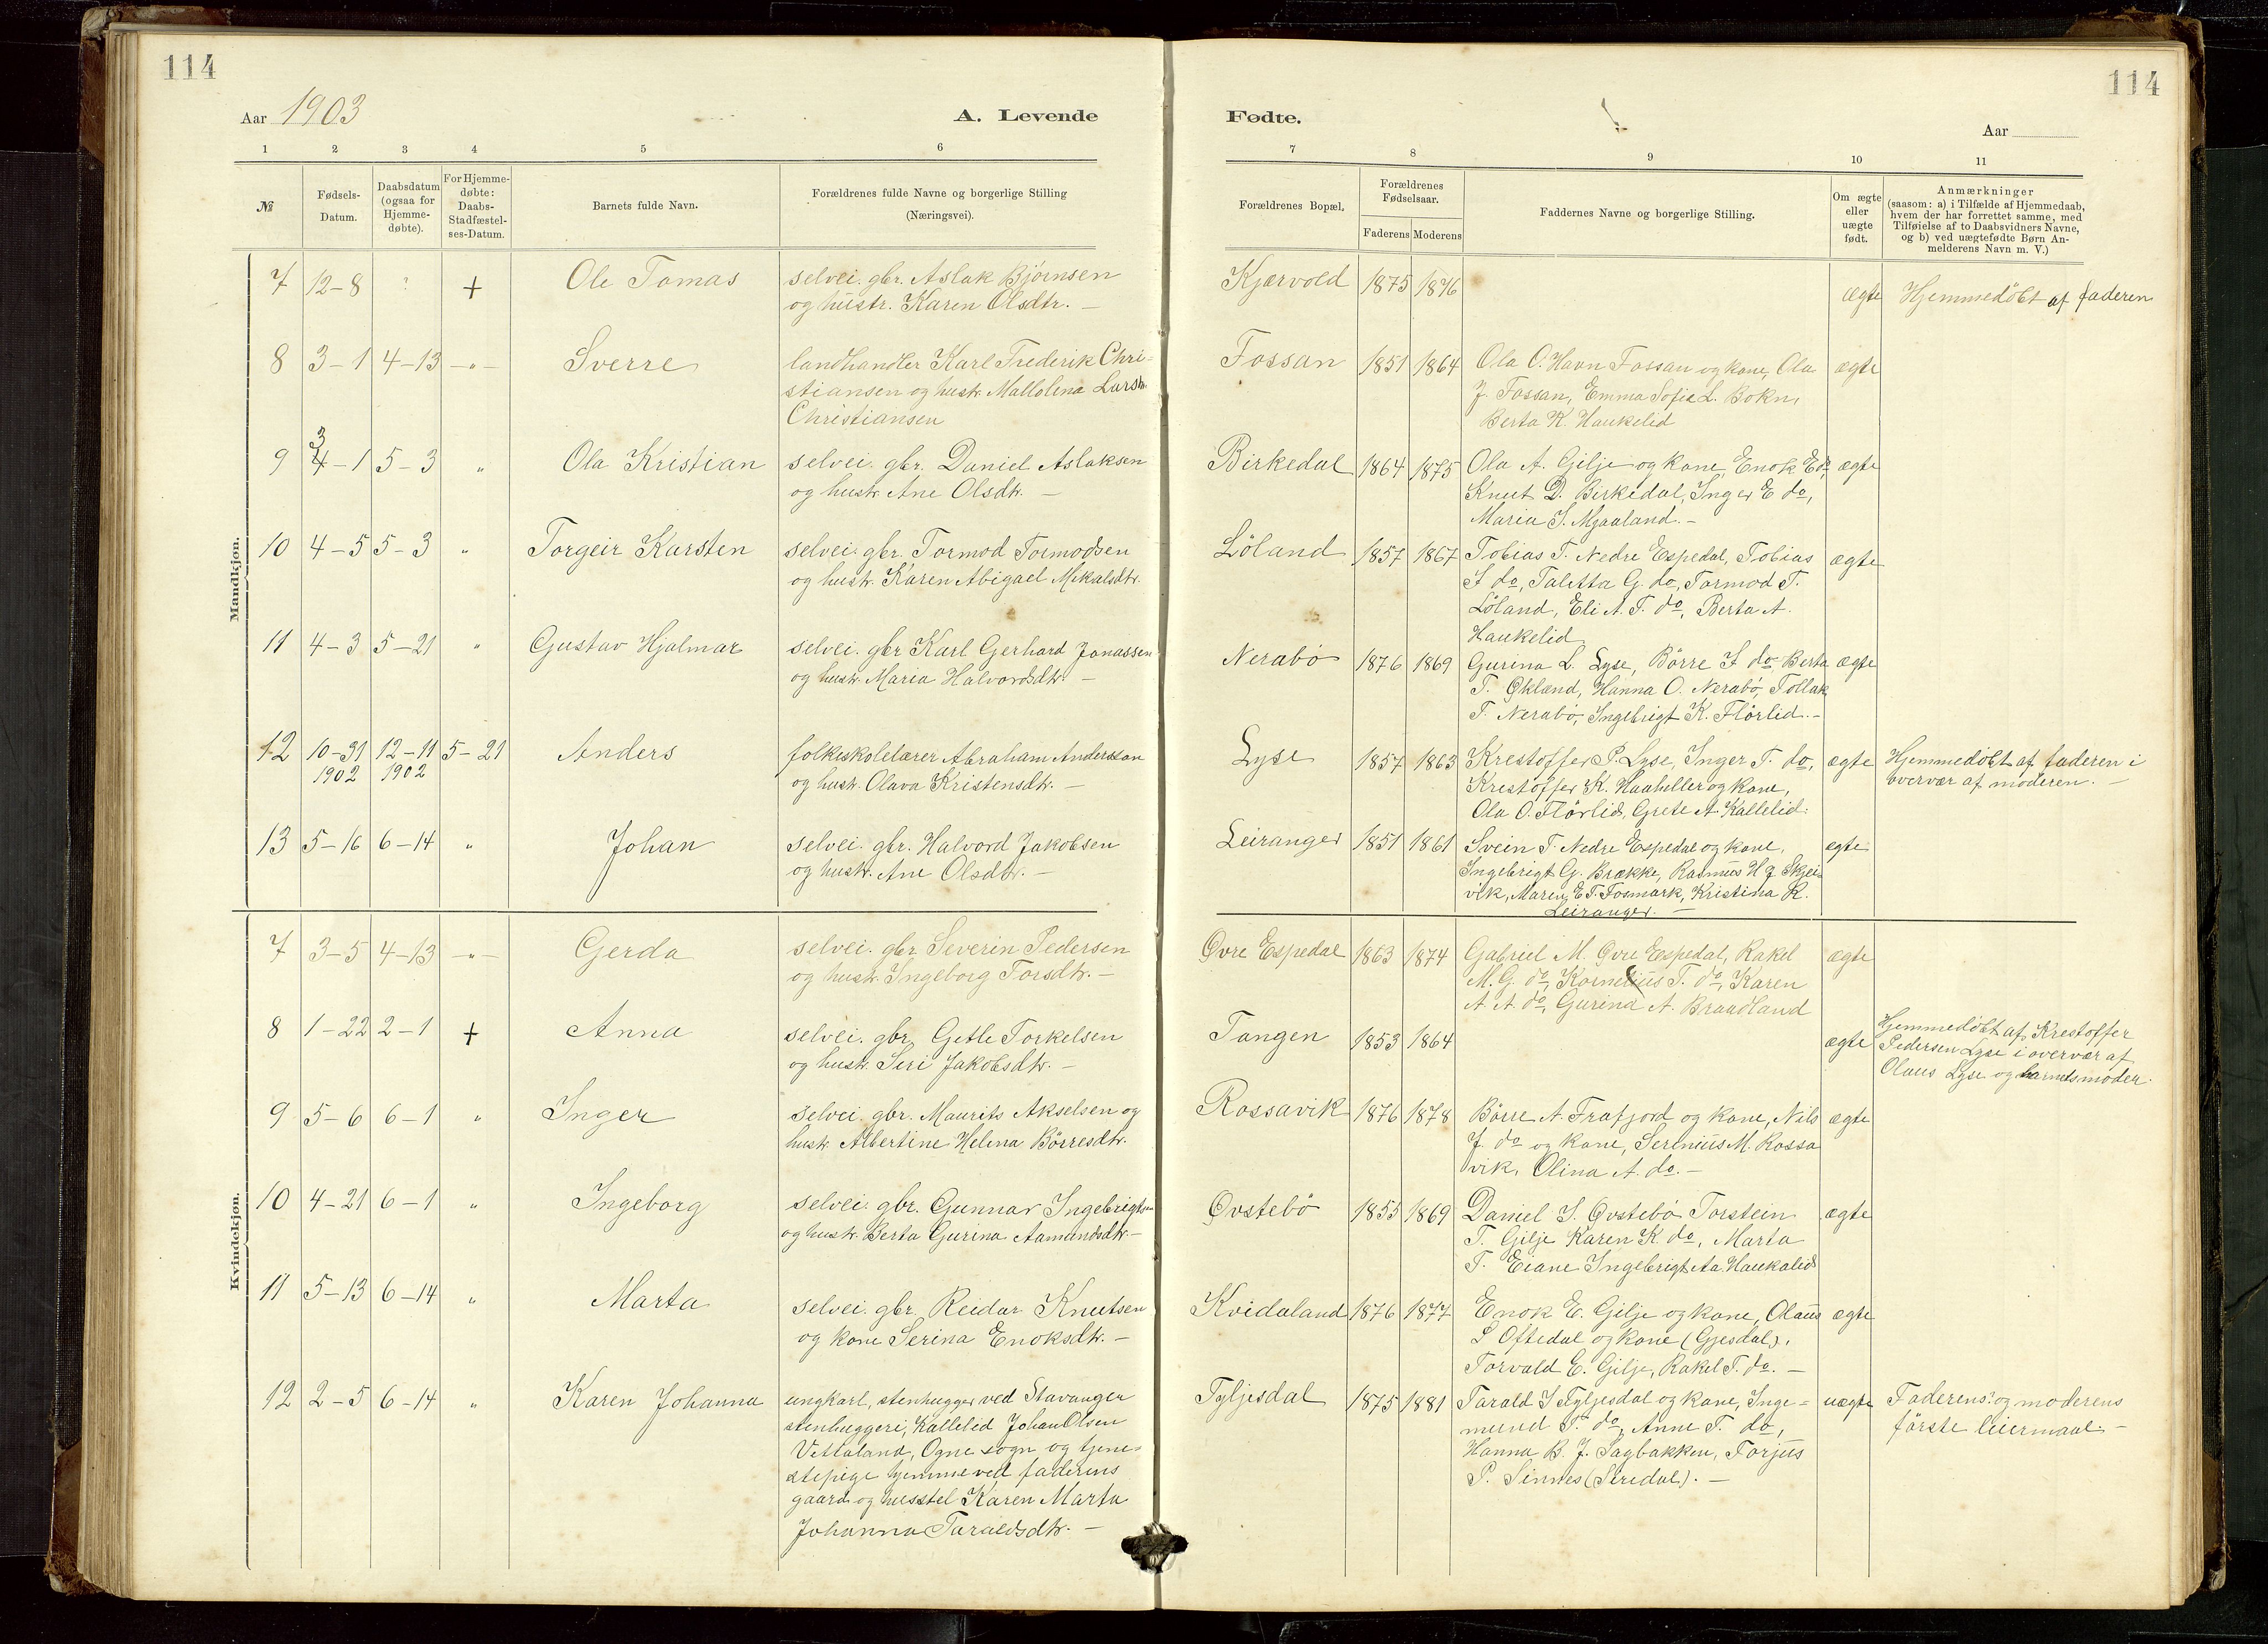 114
114
Aar 1903
A. Levende
Fødte.
Aar
1 2 3 4 5 6
7 8 9 10 11
№
Fødsels-
Datum.
Daabsdatum
(ogsaa for
Hjemme-
døbte).
For Hjemme-
døbte:
Daabs-
Stadfæstel-
ses-Datum.
Barnets fulde Navn.
Forældrenes fulde Navne og borgerlige Stilling
(Næringsvei).
Forældrenes Bopæl.
Forældrenes
Fødselsaar.
Faderens Moderens
Faddernes Navne og borgerlige Stilling.
Om ægte
eller
uægte
født.
Anmærkninger
(saasom: a) i Tilfælde af Hjemmedaab,
hvem der har forrettet samme, med
Tilføielse af to Daabsvidners Navne,
og b) ved uægtefødte Børn An-
melderens Navn m. V.)
Mandkjøn.
7 12-8 ? + Ole Tomas selvei. gbr. Aslak Bjørnsen
og hustr. Karen Olsdtr. –
Kjærvold 1875 1876 ægte Hjemmedöbt af faderen
8 3-1 4-13 -"- Sverre landhandler Karl Frederik Chri-
stiansen og hustr. Mallolena Larsdtr.
Christiansen
Fossan 1851 1864 Ola O. Havn Fossan og kone, Ola ægte
J. Fossan, Emma Sofie L. Bokn,
Berta K. Haukelid
9 3 4-1 5-3 " Ola Kristian selvei. gbr. Daniel Aslaksen
og hustr. Ane Olsdtr. –
Birkedal 1864 1875 Ola A. Gilje og kone, Enok E do, ægte
Knut D. Birkedal, Inger E do,
Maria S. Mjaaland. –
10 4-5 5-3 " Torgeir Karsten selvei. gbr. Tormod Tormodsen
og hustr. Karen Abigael Mikalsdtr.
Löland 1857 1867 Tobias T. Nedre Espedal, Tobias ægte
S do, Taletta G. do, Tormod T.
Löland, Eli A. T. do, Berta A.
Haukelid
11 4-3 5-21 " Gustav Hjalmar selvei. gbr Karl Gerhard Jonassen
og hustr. Maria Halvordsdtr. –
Nerabö 1876 1869 Gurina L. Lyse, Börre S do Berta ægte
T. Økland, Hanna O. Nerabö, Tollak
T. Nerabö, Ingebrigt K. Flörlid. –
12 10-31 12-11 5-21 Anders folkeskolelærer Abraham Andersson
1902 1902 og hustr. Olava Kristensdtr. –
Lyse 1857 1863 Krestoffer P. Lyse, Inger T. do, ægte Hjemmedöbt af faderen i
Krestoffer K. Haaheller og kone, overvær af moderen. –
Ola O. Flörlid, Grete A. Kallelid.
13 5-16 6-14 " Johan selvei. gbr. Halvord Jakobsen
og hustr. Ane Olsdtr. –
Leiranger 1851 1861 Svein T. Nedre Espedal og kone, ægte
Ingebrigt G. Brække, Rasmus H J Skjei-
vik, Maren E T. Fosmark, Kristina R.
Leiranger. –
Kvindekjøn.
7 3-5 4-13 -"- Gerda selvei. gbr Severin Pedersen
og hustr. Ingeborg Torsdtr. –
Øvre Espedal 1863 1874 Gabriel M. Øvre Espedal, Rakel ægte
M. G. do, Kornelius T. do, Karen
A. A. do, Gurina A. Braadland
8 1-22 2-1 + Anna selvei. gbr. Getle Torkelsen
og hustr. Seri Jakobsdtr. –
Tangen 1853 1864 ægte Hjemmedöbt af Krestoffer
Pedersen Lyse i overvær af
Olaus Lyse og barnets moder.
9 5-6 6-1 " Inger selvei. gbr. Maurits Akselsen og
hustr. Albertine Helena Börresdtr.
Rossavik 1876 1878 Börre A. Frafjord og kone, Nils ægte
J. do og kone, Serenius M. Rossa
vik, Olina A. do. –
10 4-21 6-1 " Ingeborg selvei. gbr. Gunnar Ingebrigtsen
og hustr. Berta Gurina Aamundsdtr –
Øvstebö 1855 1869 Daniel S. Øvstebö Torstein ægte
T. Gilje Karen K. do, Marta
T. Eiane Ingebrigt Aa. Haukalid
11 5-13 6-14 " Marta selvei. gbr. Reidar Knutsen
og kone Serina Enoksdtr. –
Kvidaland 1876 1877 Enok E. Gilje og kone, Olaus ægte
S Oftedal og kone (Gjesdal),
Torvald E. Gilje, Rakel T. do. –
12 2-5 6-14 " Karen Johanna ungkarl, stenhugger ved Stavanger
stenhuggeri, Kallelid Johan Olsen
Vettaland, Ogne sogn og tjene-
stepige hjemme ved faderens
gaard og husstel Karen Marta
Johanna Taraldsdtr. –
Tyljesdal 1875 1881 Tarald S Tyljesdal og kone, Inge- uægte Faderens og moderens
mund T. do, Anne T. do, förste leiermaal. –
Hanna B. J. Sagbakken, Torjus
P. Sinnes (Siredal). –